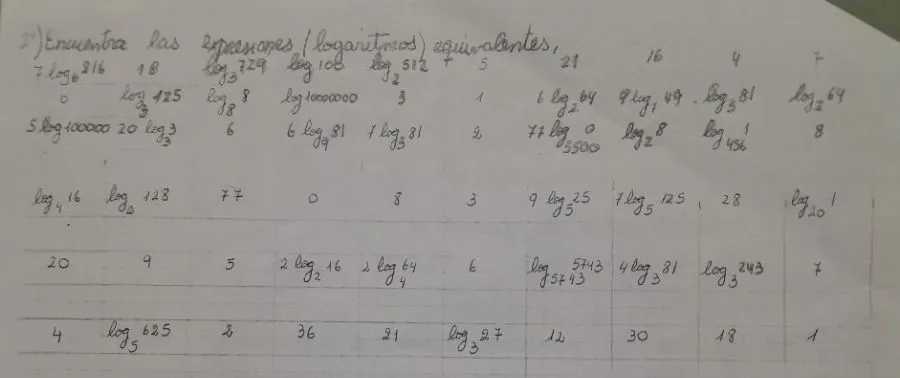 2º) Encuentra las expresiones (logaritmos) equivalentes,
7 log₆ 816 18 log₃ 729 log 100 log₂ 512 5 21 16 4 7
0 log₃ 125 log₈ 8 log 10000000 3 1 6 log₂ 64 9 log₇ 49 log₃ 81 log₂ 64
5 log 100000 20 log₃ 3 6 6 log₉ 81 7 log₃ 81 2 77 log₅₅₀₀ 0 log₂ 8 log₄₅₆ 1 8
log₄ 16 log₂ 128 77 0 8 3 9 log₅ 25 7 log₅ 125 28 log₂₀ 1
20 9 5 2 log₂ 16 2 log₄ 64 6 log₅₇₄₃ 5743 4 log₃ 81 log₃ 243 7
4 log₅ 625 2 36 21 log₃ 27 12 30 18 1